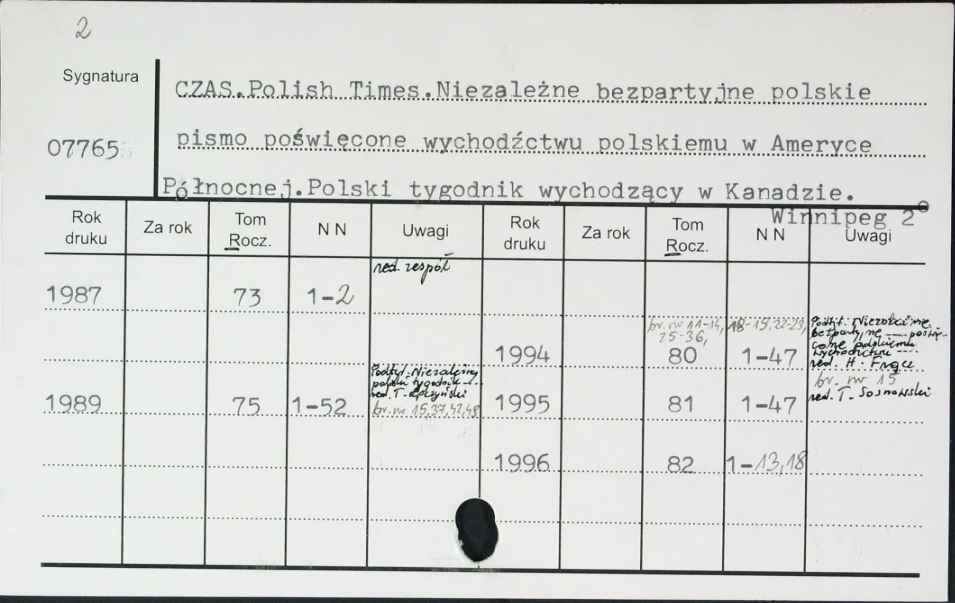 2
Sygnatura
07765
CZAS.Polish Times.Niezależne bezpartyjne polskie
pismo poświęcone wychodźctwu polskiemu w Ameryce
Północnej.Polski tygodnik wychodzący w Kanadzie.
Winnipeg 2°
Rok druku Za rok Tom Rocz. N N Uwagi Rok druku Za rok Tom Rocz. N N Uwagi
red. zespół
1987 73 1-2
br. nr 11-14, 18-19, 22-23,
25-36,
1994 80 1-47
Podtyt. Niezależne
bezpartyjne --- poświę-
cone polskiemu
wychodźctwu ---
red. H.
Podtyt. Niezależny
polski tygodnik /..
red. T.
br. nr 15,37,42,48
1989 75 1-52
1995 81 1-47
br. nr 15
red. T. Sosnowski
1996 82 1-13,18